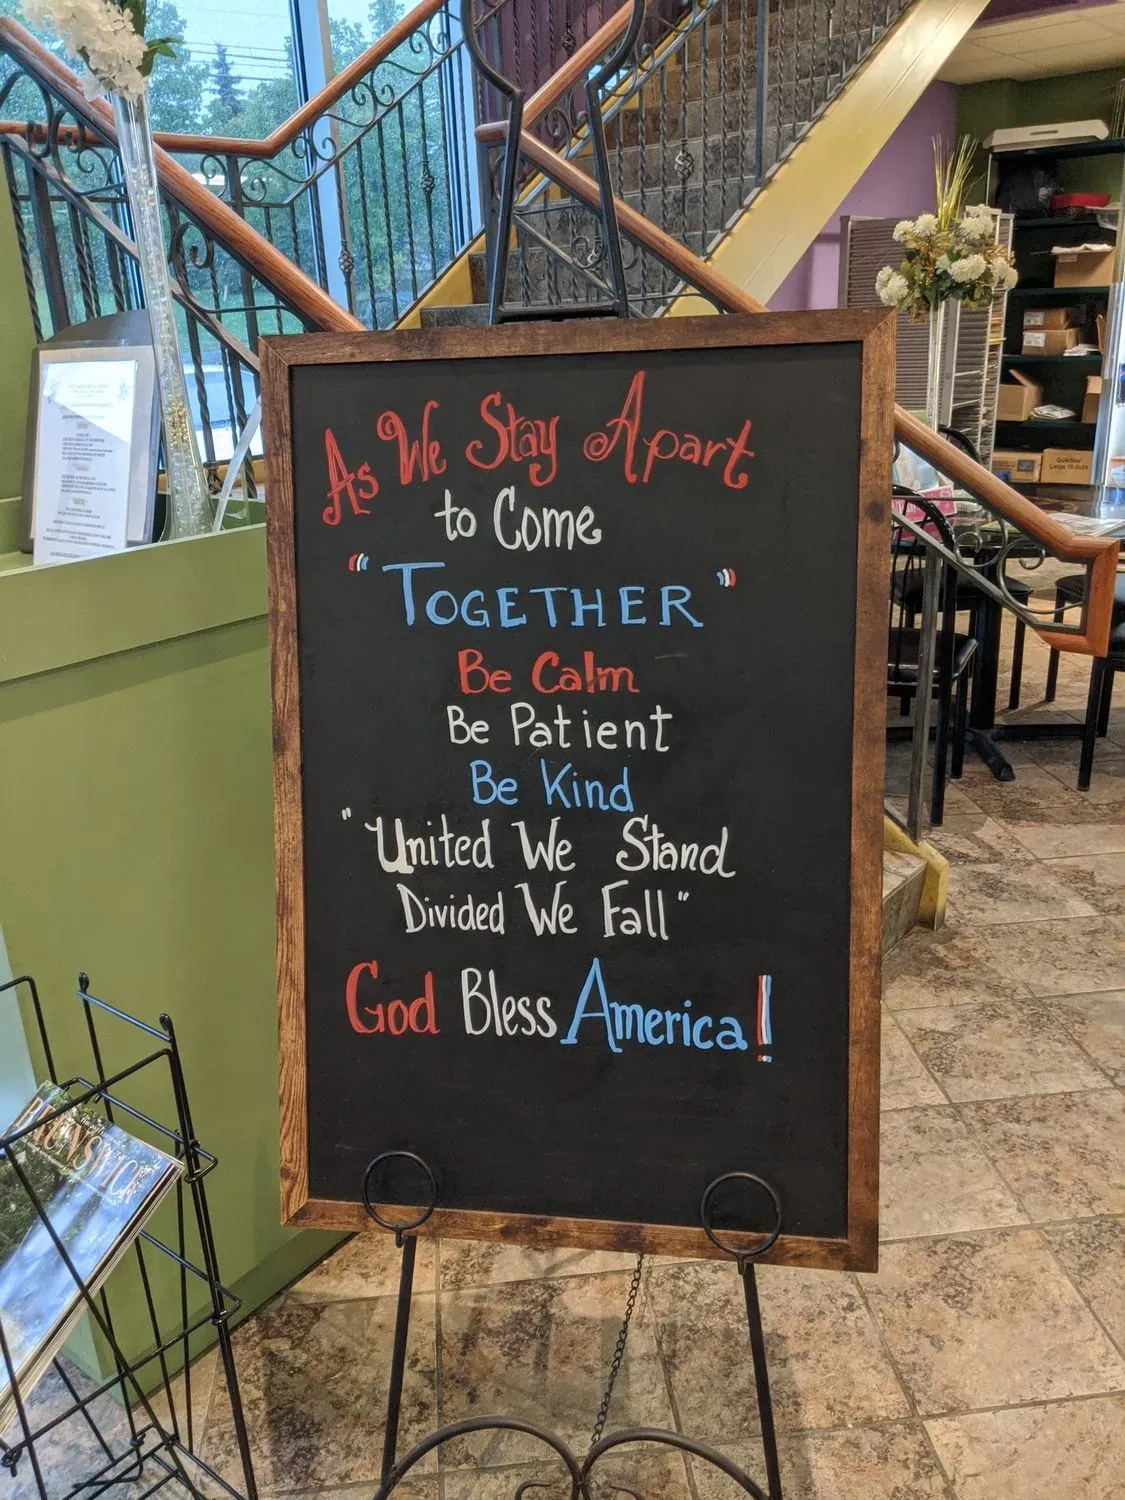 As We Stay Apart
to Come
"TOGETHER"
Be Calm
Be Patient
Be Kind
"United We Stand
Divided We Fall"
God Bless America!
BRUNSWICK